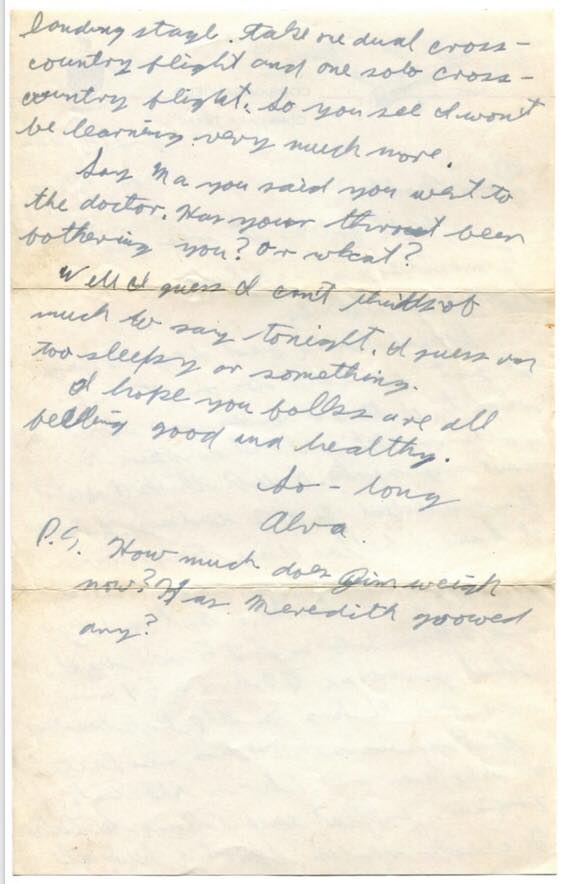 landing stage. take one dual cross-
country flight and one solo cross-
country flight. So you see I won't
be learning very much more.
Say Ma you said you went to
the doctor. Has your throat been
bothering you? Or what?
Well I guess I can't think of
much to say tonight. I guess I'm
too sleepy or something.
I hope you folks are all
feeling good and healthy.
So-long
Alva.
P.S. How much does Jim weigh
now? Has Meredith growed
any?